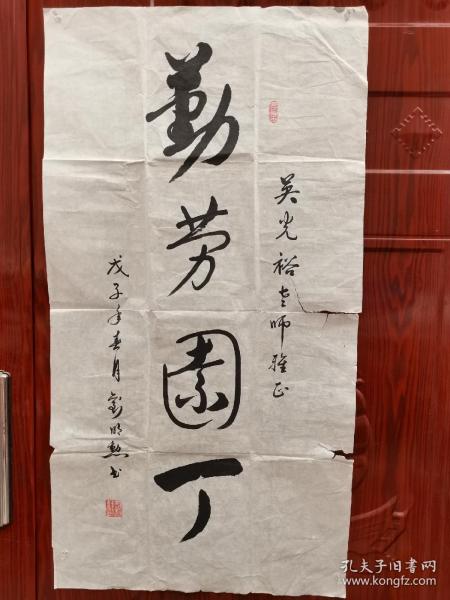 吴光裕老师雅正
勤劳園丁
戊子年春月劉明勲书
孔夫子旧书网
www.kongfz.com